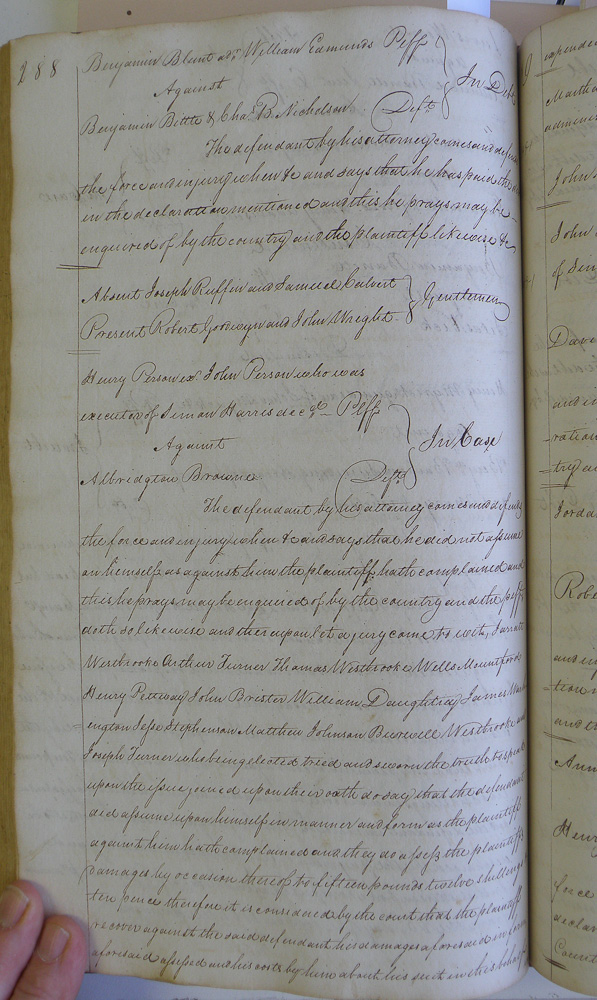 288
Benjamin Blunt adr. William Edmunds Peff
Against
In Debt
Benjamin Bittle & Chas. B. Nicholson Deft
The defendant by his attorney comes and defends
the force and injury when &c and says that he has paid the
in the declaration mentioned and this he prays may be
enquired of by the country and the plaintiff likewise &c
Absent Joseph Ruffin and Samuel Calvert
Gentlemen
Present Robert Goodwyn and John Wright
Henry Person exr. John Person who was
executor of Simon Harris decd. Peff
Against
In Case
Albridgton Browne Deft
The defendant by his attorney comes and defends
the force and injury when &c and says that he did not assume
on himself as against him the plaintiff hath complained and
this he prays may be enquired of by the country and the peff
doth so likewise and thereupon let a jury come to wit, Jarratt
Westbrooke Arthur Turner Thomas Westbrooke Wells Mountford
Henry Pettway John Brister William Daughtrey James Wash
ington Jesse Stephenson Matthew Johnson Burwell Westbrooke and
Joseph Turner who being elected tried and sworn the truth to speak
upon the issue joined upon their oath do say that the defendant
did assume upon himself in manner and form as the plaintiff
against him hath complained and they do assess the plaintiffs
damages by occasion thereof to fifteen pounds twelve shillings
ten pence therefore it is considered by the court that the plaintiff
recover against the said defendant his damages aforesaid in form
aforesaid assessed and his costs by him about his suit in this behalf
expended
Martha
adminis
John
John
of Sim
Dave
and in
ration
try an
Jorda
Robe
and inj
tion
and th
Ann
Henry
force
declar
Count